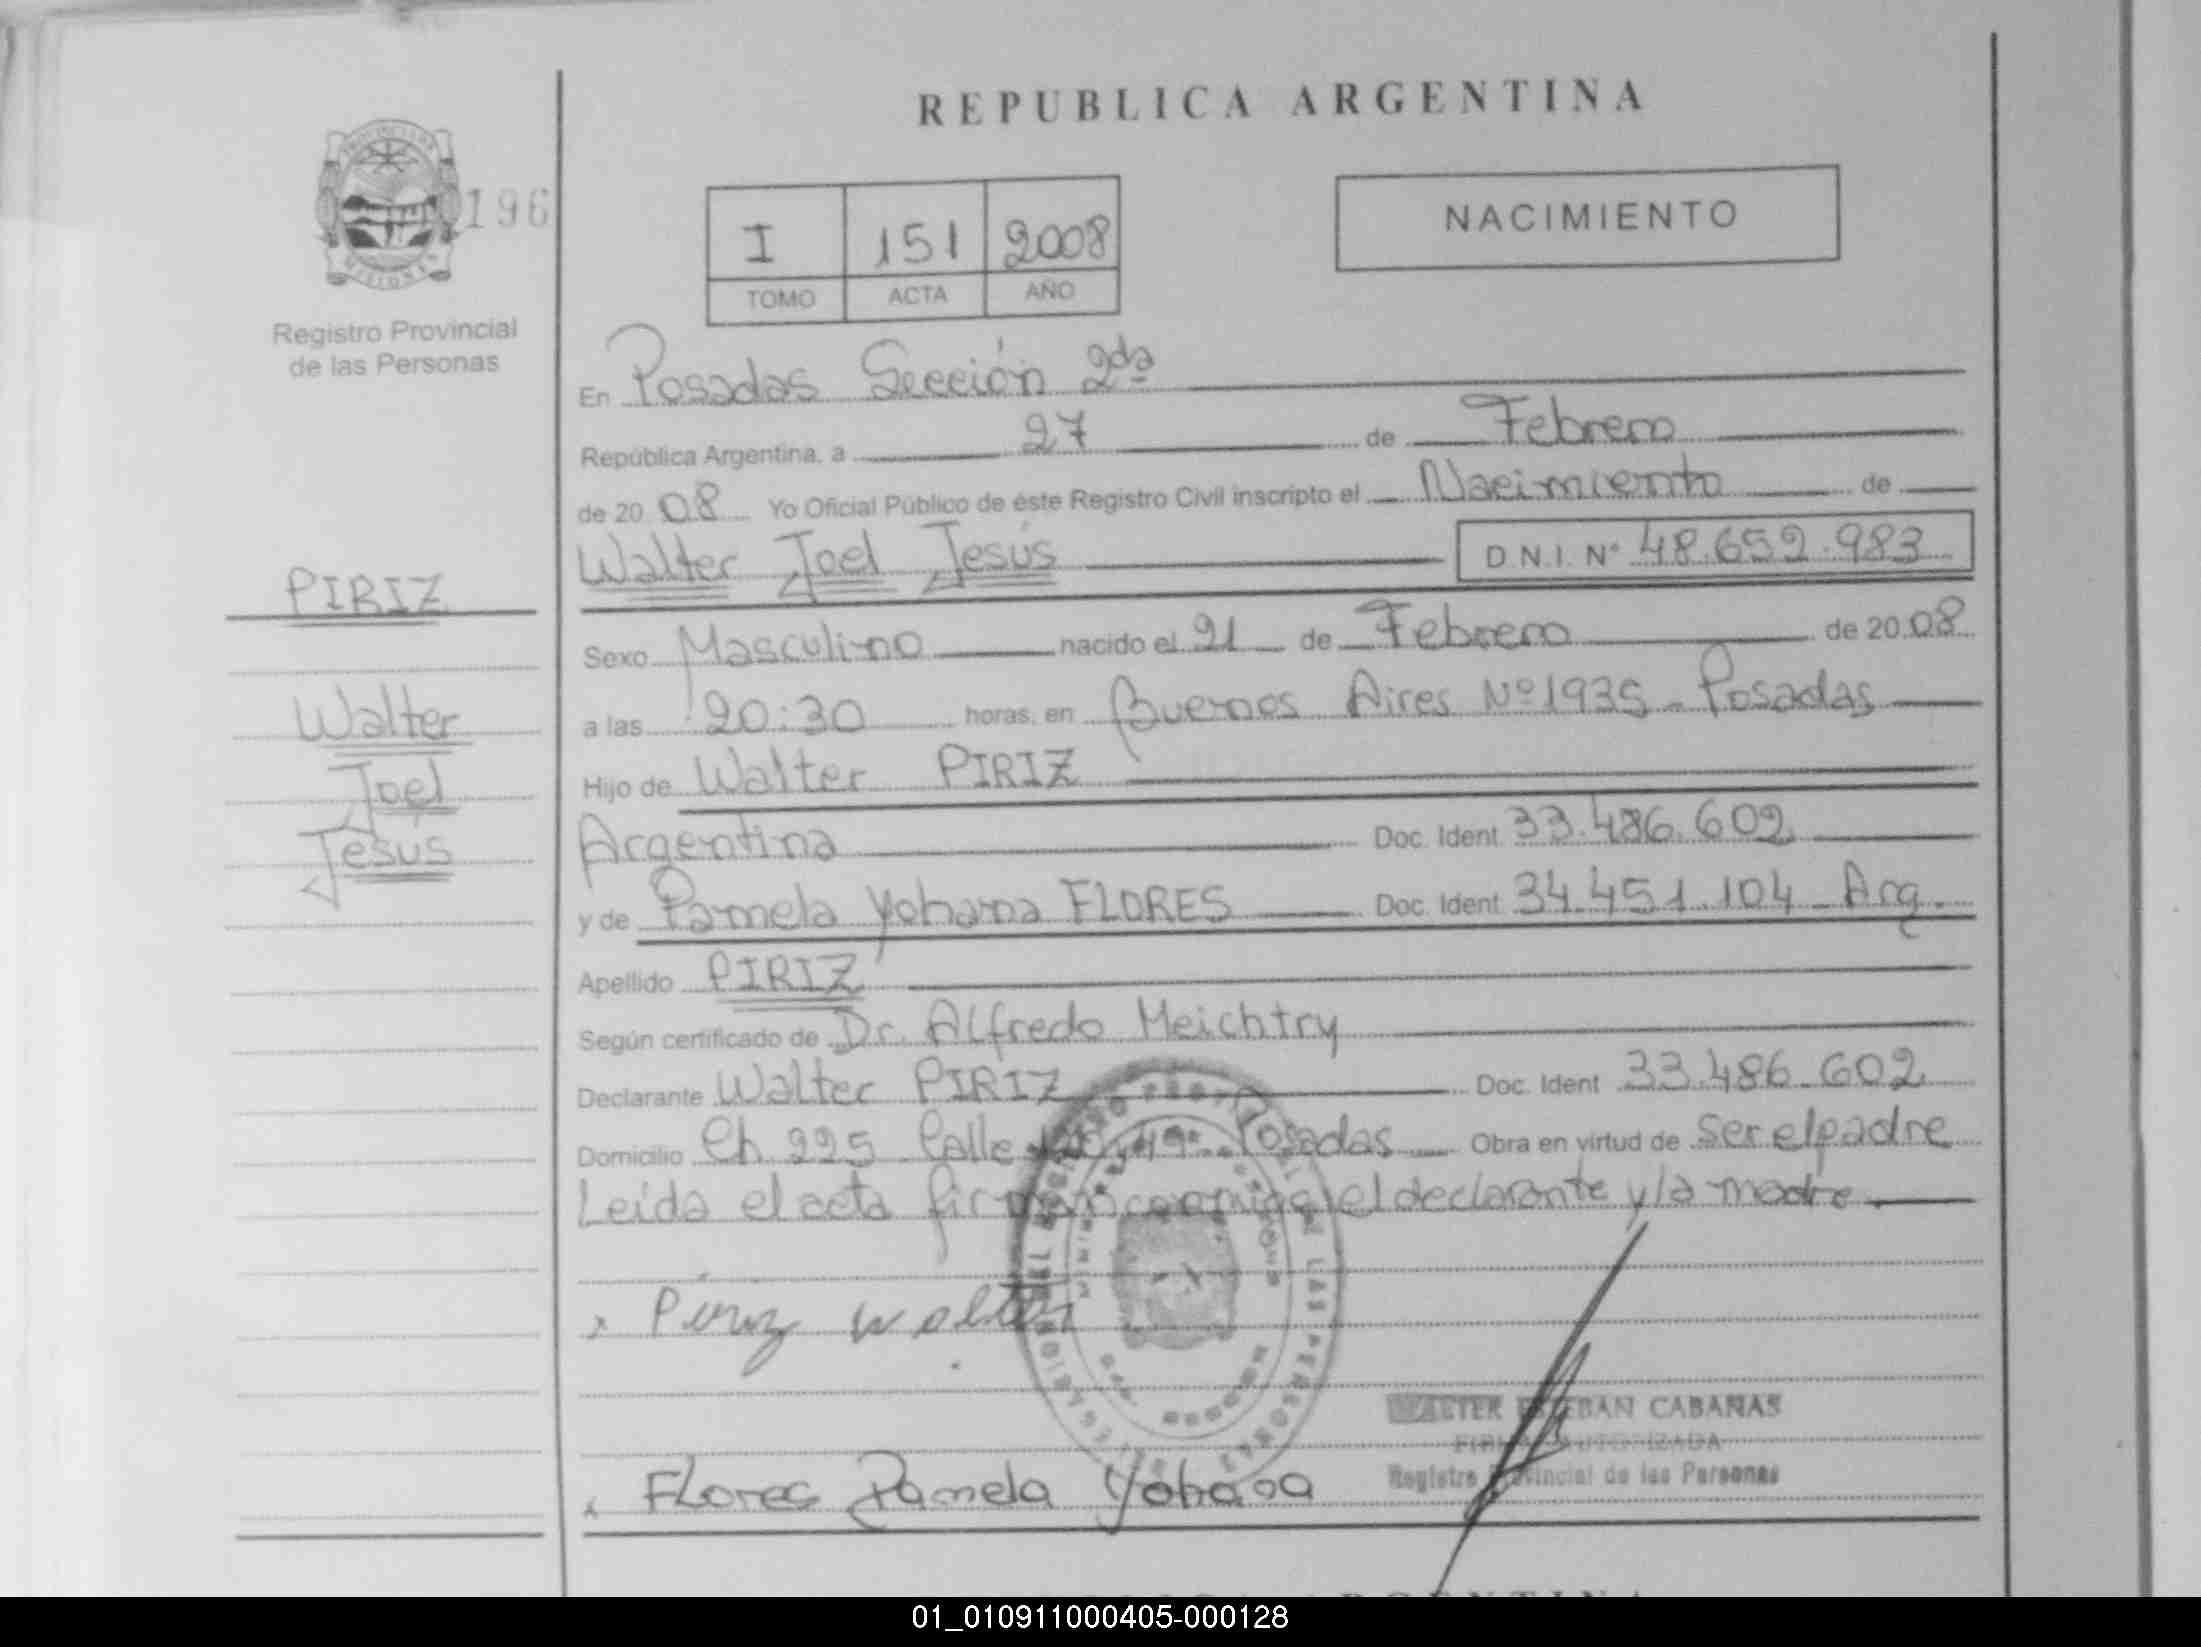 REPUBLICA ARGENTINA
196
NACIMIENTO
I 151 2008
TOMO ACTA AÑO
Registro Provincial
de las Personas
En Posadas Sección 2da
República Argentina, a 27 de Febrero
de 2008 Yo Oficial Público de éste Registro Civil inscripto el Nacimiento de
Walter Joel Jesús D.N.I. Nº 48.652.983
PIRIZ
Walter
Joel
Jesús
Sexo Masculino nacido el 21 de Febrero de 2008
a las 20:30 horas, en Buenos Aires Nº 1935 - Posadas
Hijo de Walter PIRIZ
Argentina Doc. Ident 33.486.602
y de Pamela Yohana FLORES Doc. Ident 34.451.104 - Arg.
Apellido PIRIZ
Según certificado de Dr. Alfredo Meichtry
Declarante Walter PIRIZ Doc. Ident 33.486.602
Domicilio Ch. 225 Calle Posadas Obra en virtud de Ser el padre
Leída el acta firman conmigo el declarante y la madre
x Piriz Walter
WALTER ESTEBAN CABAÑAS
FIRMA AUTORIZADA
Registro Provincial de las Personas
x Flores Pamela Yohana
01_010911000405-000128